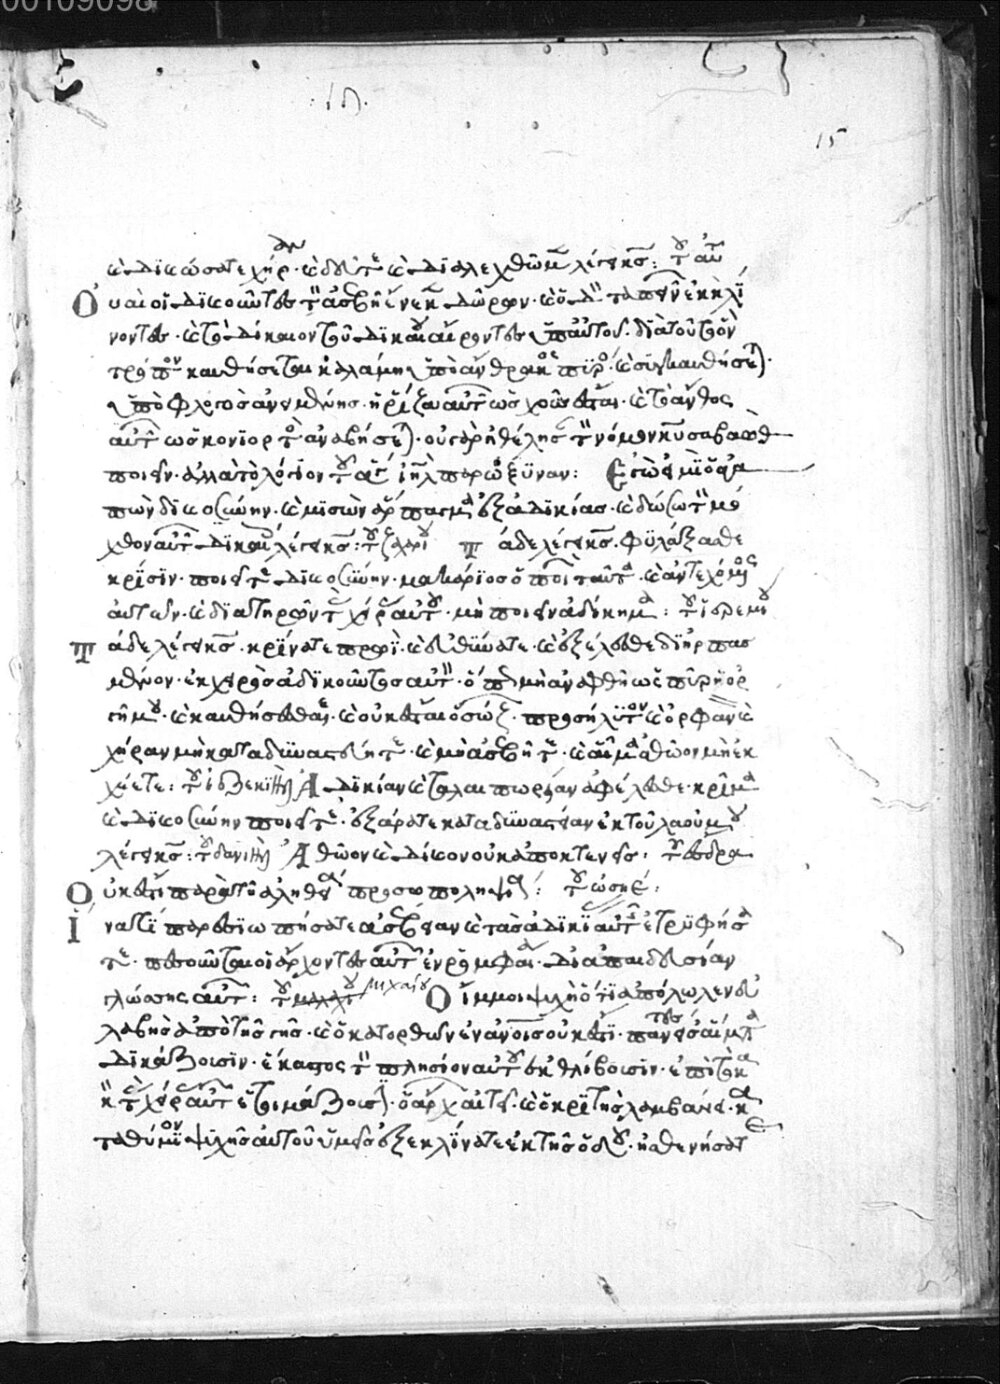 00109098
15
καὶ δικαιώσατε χήραν· καὶ δεῦτε καὶ διαλεχθῶμεν λέγει κς: τοῦ αὐτ
Οὐαὶ οἱ δικαιοῦντες τὸν ἀσεβῆ ἕνεκεν δώρων· καὶ ὁδὸν ταπεινῶν ἐκκλί
νοντες· καὶ τὸ δίκαιον τοῦ δικαίου αἴροντες ἀπ' αὐτοῦ· διὰ τοῦτο ὃν
τρόπον καυθήσεται καλάμη ὑπὸ ἄνθρακος πυρὸς καὶ συγκαυθήσεται·
ὑπὸ φλογὸς ἀνειμένης· ἡ ῥίζα αὐτῶν ὡς χοῦς ἔσται· καὶ τὸ ἄνθος
αὐτῶν ὡς κονιορτὸς ἀναβήσεται· οὐ γὰρ ἠθέλησαν τὸν νόμον κυ σαβαὼθ
ποιεῖν· ἀλλὰ τὸ λόγιον τοῦ ἁγίου ιηλ παρώξυναν: Ἐγώ εἰμι ὁ ἀγα
πῶν δικαιοσύνην· καὶ μισῶν ἁρπάγματα ἐξ ἀδικίας· καὶ δώσω τὸν μό
χθον αὐτῶν δικαίοις λέγει κς: τοῦ
Τάδε λέγει κς· φυλάξασθε
κρίσιν· ποιήσατε δικαιοσύνην· μακάριος ὁ ποιῶν ταῦτα· καὶ ἀντεχόμενος
αὐτῶν· καὶ διατηρῶν τὰς χεῖρας αὐτοῦ· μὴ ποιεῖν ἀδίκημα: τοῦ ἱερεμίου
Τάδε λέγει κς· κρίνατε πρωῒ· καὶ εὐθύνατε· καὶ ἐξέλεσθε διηρπασ
μένον· ἐκ χειρὸς ἀδικοῦντος αὐτόν· ὅπως μὴ ἀναφθῇ ὡς πῦρ ἡ ὀρ
γή μου· καὶ καυθήσεσθαι· καὶ οὐκ ἔσται ὁ σώζων· προσήλυτον καὶ ὀρφανὸν καὶ
χήραν μὴ καταδυναστεύητε· καὶ μὴ ἀσεβῆτε· καὶ αἷμα ἀθῶον μὴ ἐκ
χέετε: τοῦ ἰεζεκιήλ Ἀδικίαν καὶ ταλαιπωρίαν ἀφέλεσθε· κρίμα
καὶ δικαιοσύνην ποιήσατε· ἐξάρατε καταδυναστείαν ἐκ τοῦ λαοῦ μου
λέγει κς: τοῦ δανιήλ Ἀθῶον καὶ δίκαιον οὐκ ἀποκτενεῖς: τοῦ ἔσδρα
Οὐκ ἔστι παρὰ τῇ ἀληθείᾳ προσωποληψία: τοῦ ὠσηέ:
Ἵνα τί παρεσιωπήσατε ἀσέβειαν καὶ τὰς ἀδικίας αὐτῆς ἐτρυγήσα
τε· πεσοῦνται οἱ ἄρχοντες αὐτῶν ἐν ῥομφαίᾳ· δι' ἀπαιδευσίαν
γλώσσης αὐτῶν: τοῦ μιχαίου Οἴμμοι ψυχή ὅτι ἀπόλωλεν εὐ
λαβὴς ἀπὸ τῆς γῆς· καὶ ὁ κατορθῶν ἐν ἀνοις οὐκ ἔστι· πάντες εἰς αἵματα
δικάζουσιν· ἕκαστος τὸν πλησίον αὐτοῦ ἐκθλίβουσιν· ἐπὶ τὸ κα
κὸν τὰς χεῖρας αὐτῶν ἑτοιμάζουσιν· ὁ ἄρχων αἰτεῖ· καὶ ὁ κριτὴς λαμβάνει· κα
ταθύμιον ψυχῆς αὐτοῦ ὑμεῖς ἐξεκλίνατε ἐκ τῆς ὁδοῦ· ἠσθενήσατε